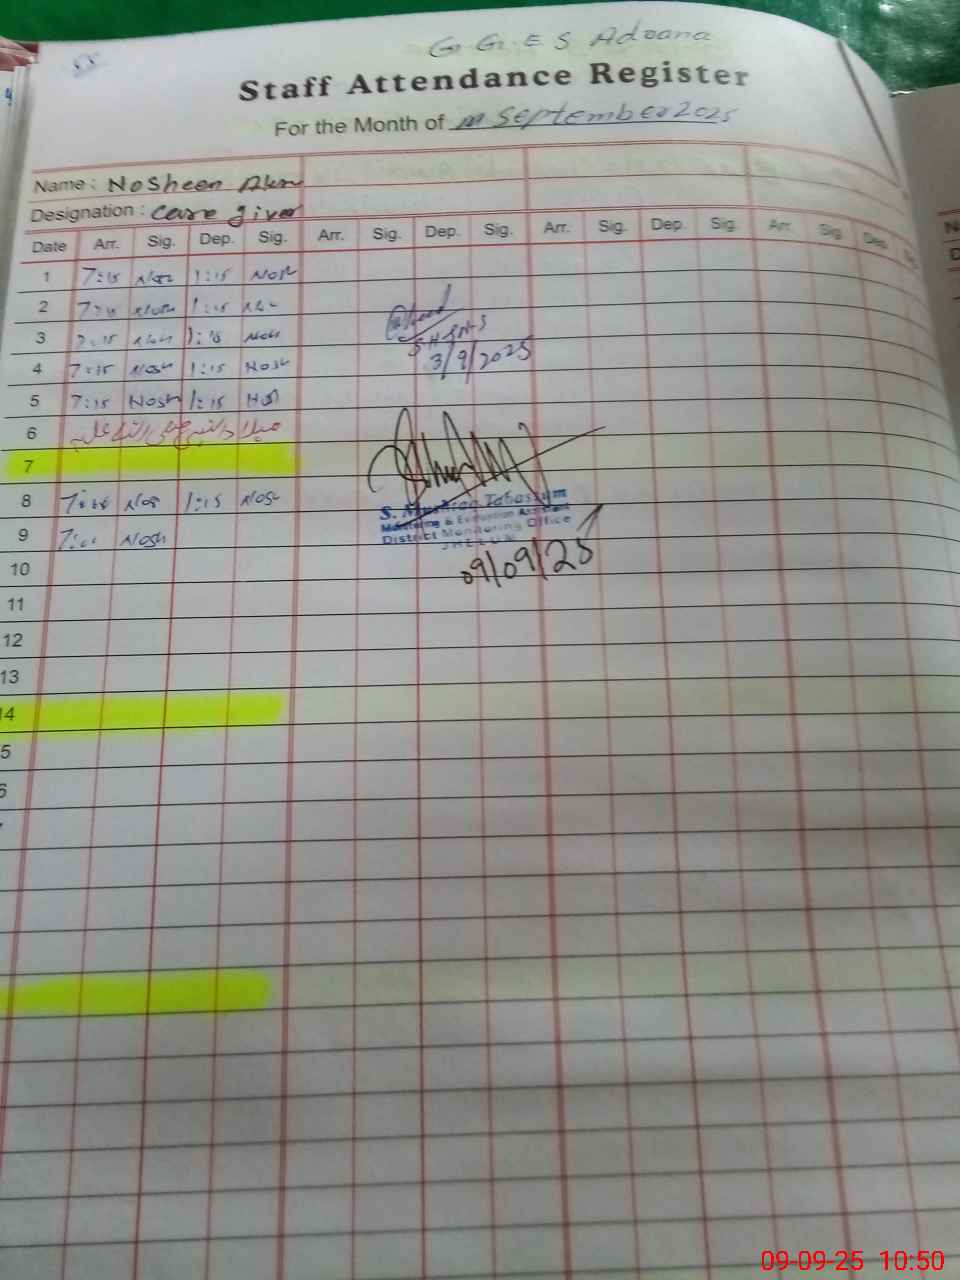 G.G.E S Adoana
Staff Attendance Register
For the Month of September 2025
Name : Nosheen
Designation : Care giver
Date Arr. Sig. Dep. Sig. Arr. Sig. Dep. Sig. Arr. Sig. Dep. Sig. Arr. Sig. Dep.
1 7:15 Nosh 1:15 Nosh
2 7:15 Nosh 1:15
3 7:15 1:15 Nosh
3/9/2025
4 7:15 Nosh 1:15 Nosh
5 7:15 Nosh 1:15
6
7
8 1:15 Nosh
S. Tabassum
Monitoring & Evaluation Assistant
District Monitoring Office
JHELUM
9 Nosh
09/09/25
10
11
12
13
14
5
6
09-09-25 10:50